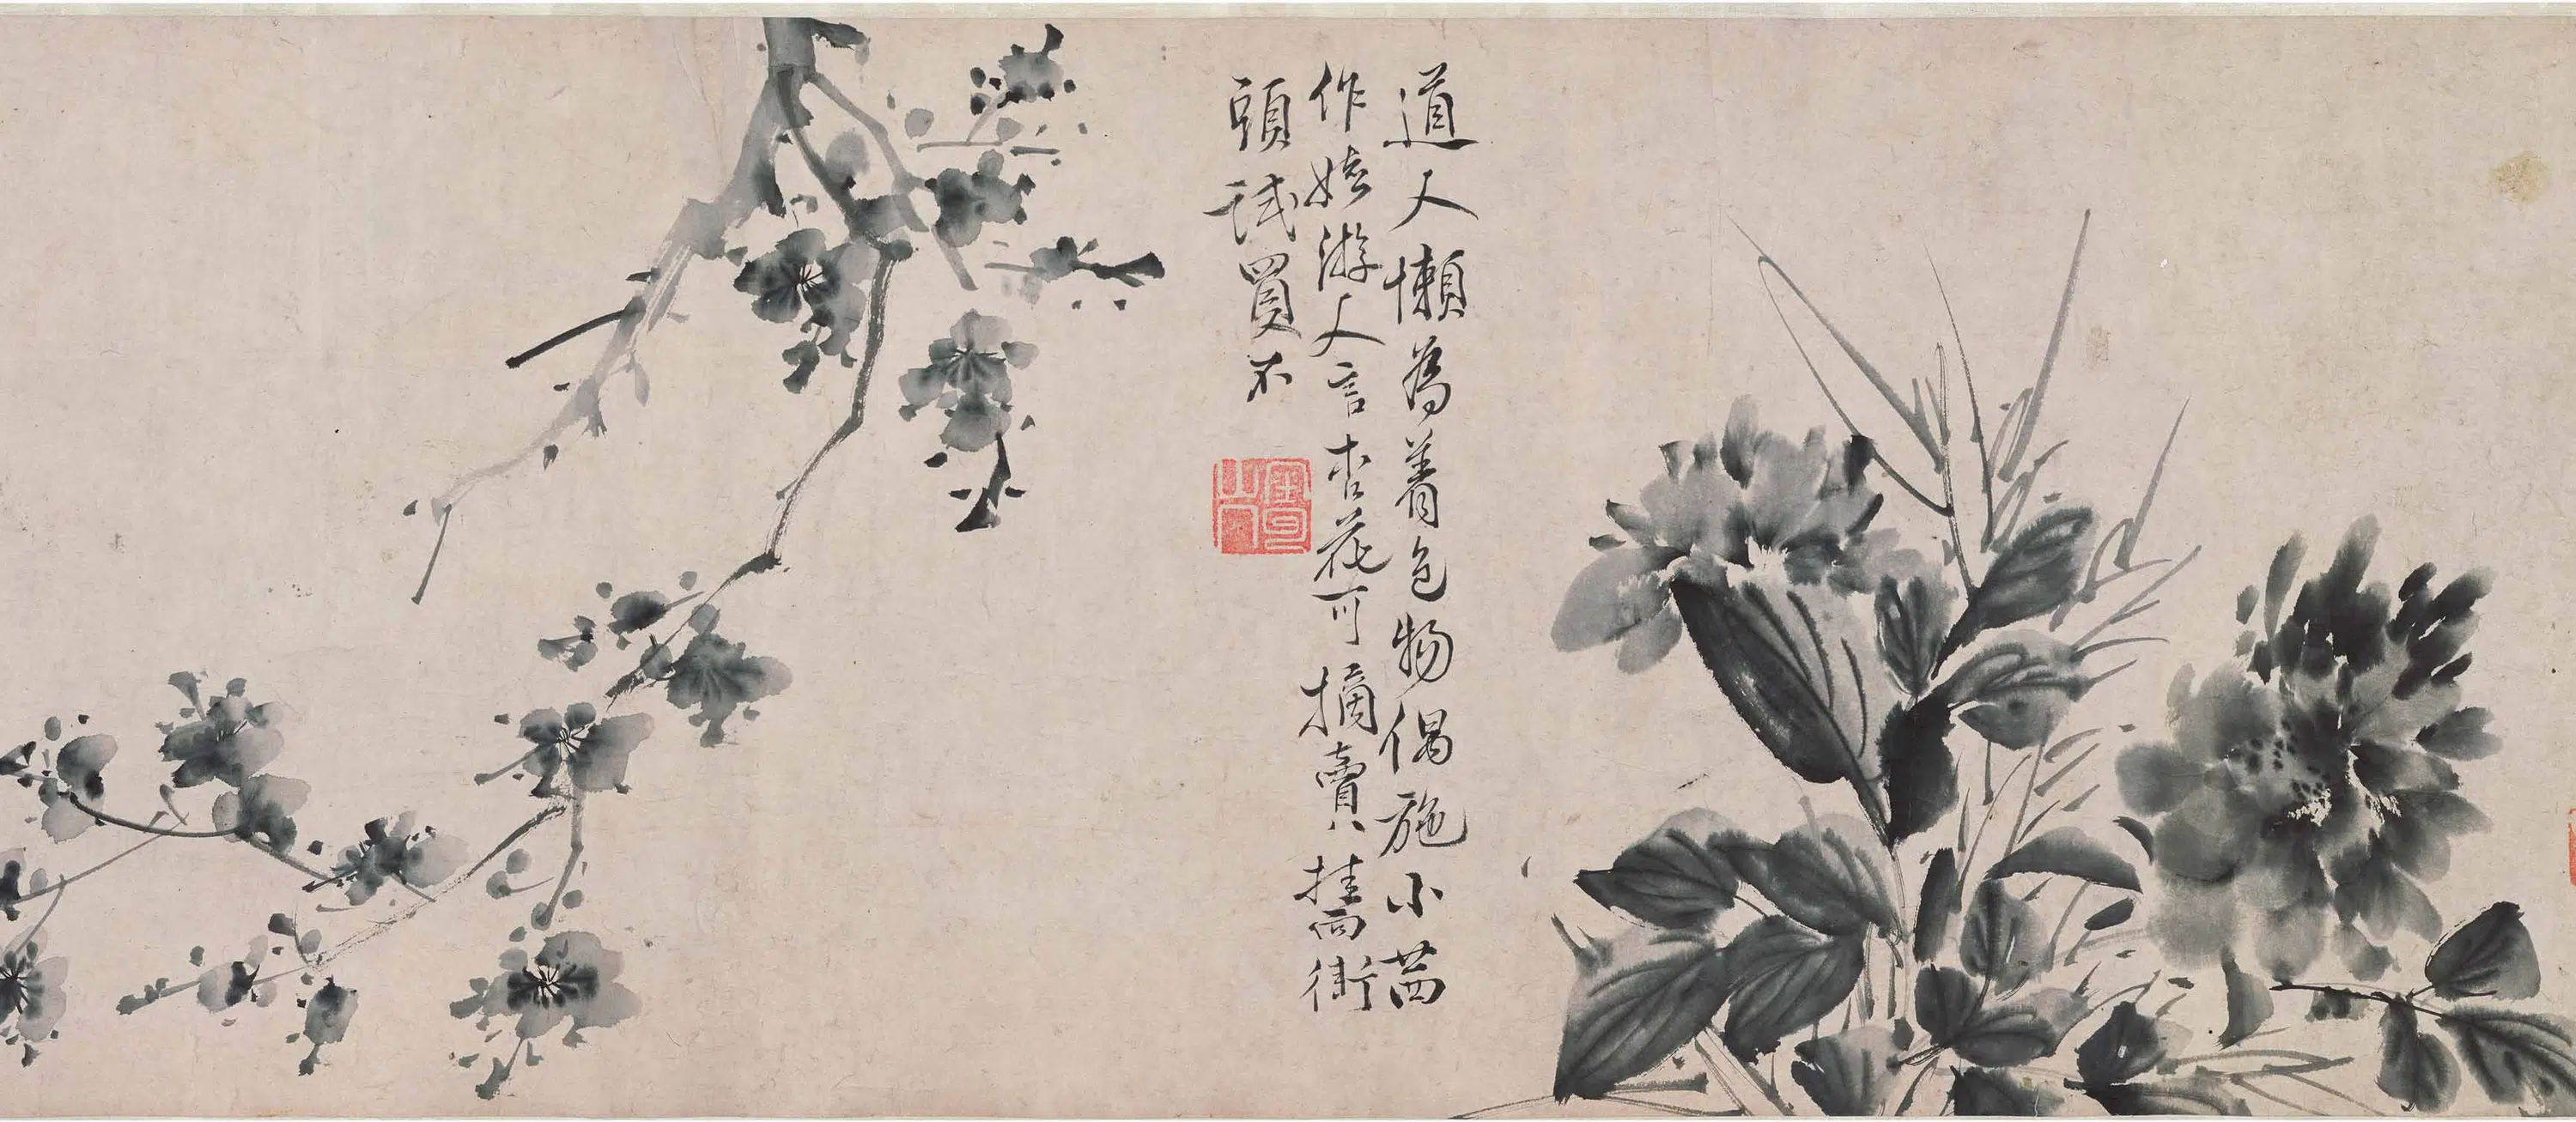 道人懶為着色物偶施小茜
作嬉游人言杏花可摘賣挂向街
頭試買不